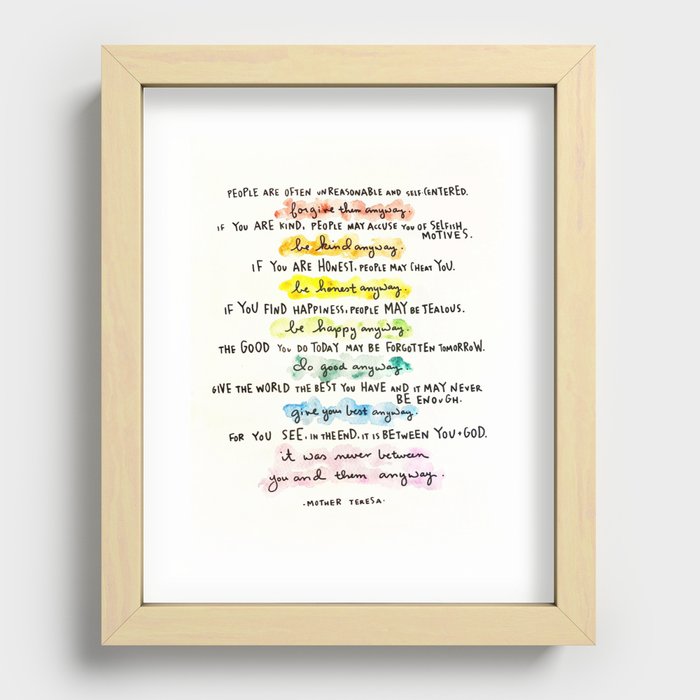 PEOPLE ARE OFTEN UNREASONABLE AND SELF-CENTERED.
forgive them anyway.
IF YOU ARE KIND, PEOPLE MAY ACCUSE YOU OF SELFISH
MOTIVES.
be kind anyway.
IF YOU ARE HONEST, PEOPLE MAY CHEAT YOU.
be honest anyway.
IF YOU FIND HAPPINESS, PEOPLE MAY BE JEALOUS.
be happy anyway.
THE GOOD YOU DO TODAY MAY BE FORGOTTEN TOMORROW.
do good anyway.
GIVE THE WORLD THE BEST YOU HAVE AND IT MAY NEVER
BE ENOUGH.
give your best anyway.
FOR YOU SEE, IN THE END, IT IS BETWEEN YOU + GOD.
it was never between
you and them anyway.
·MOTHER TERESA·